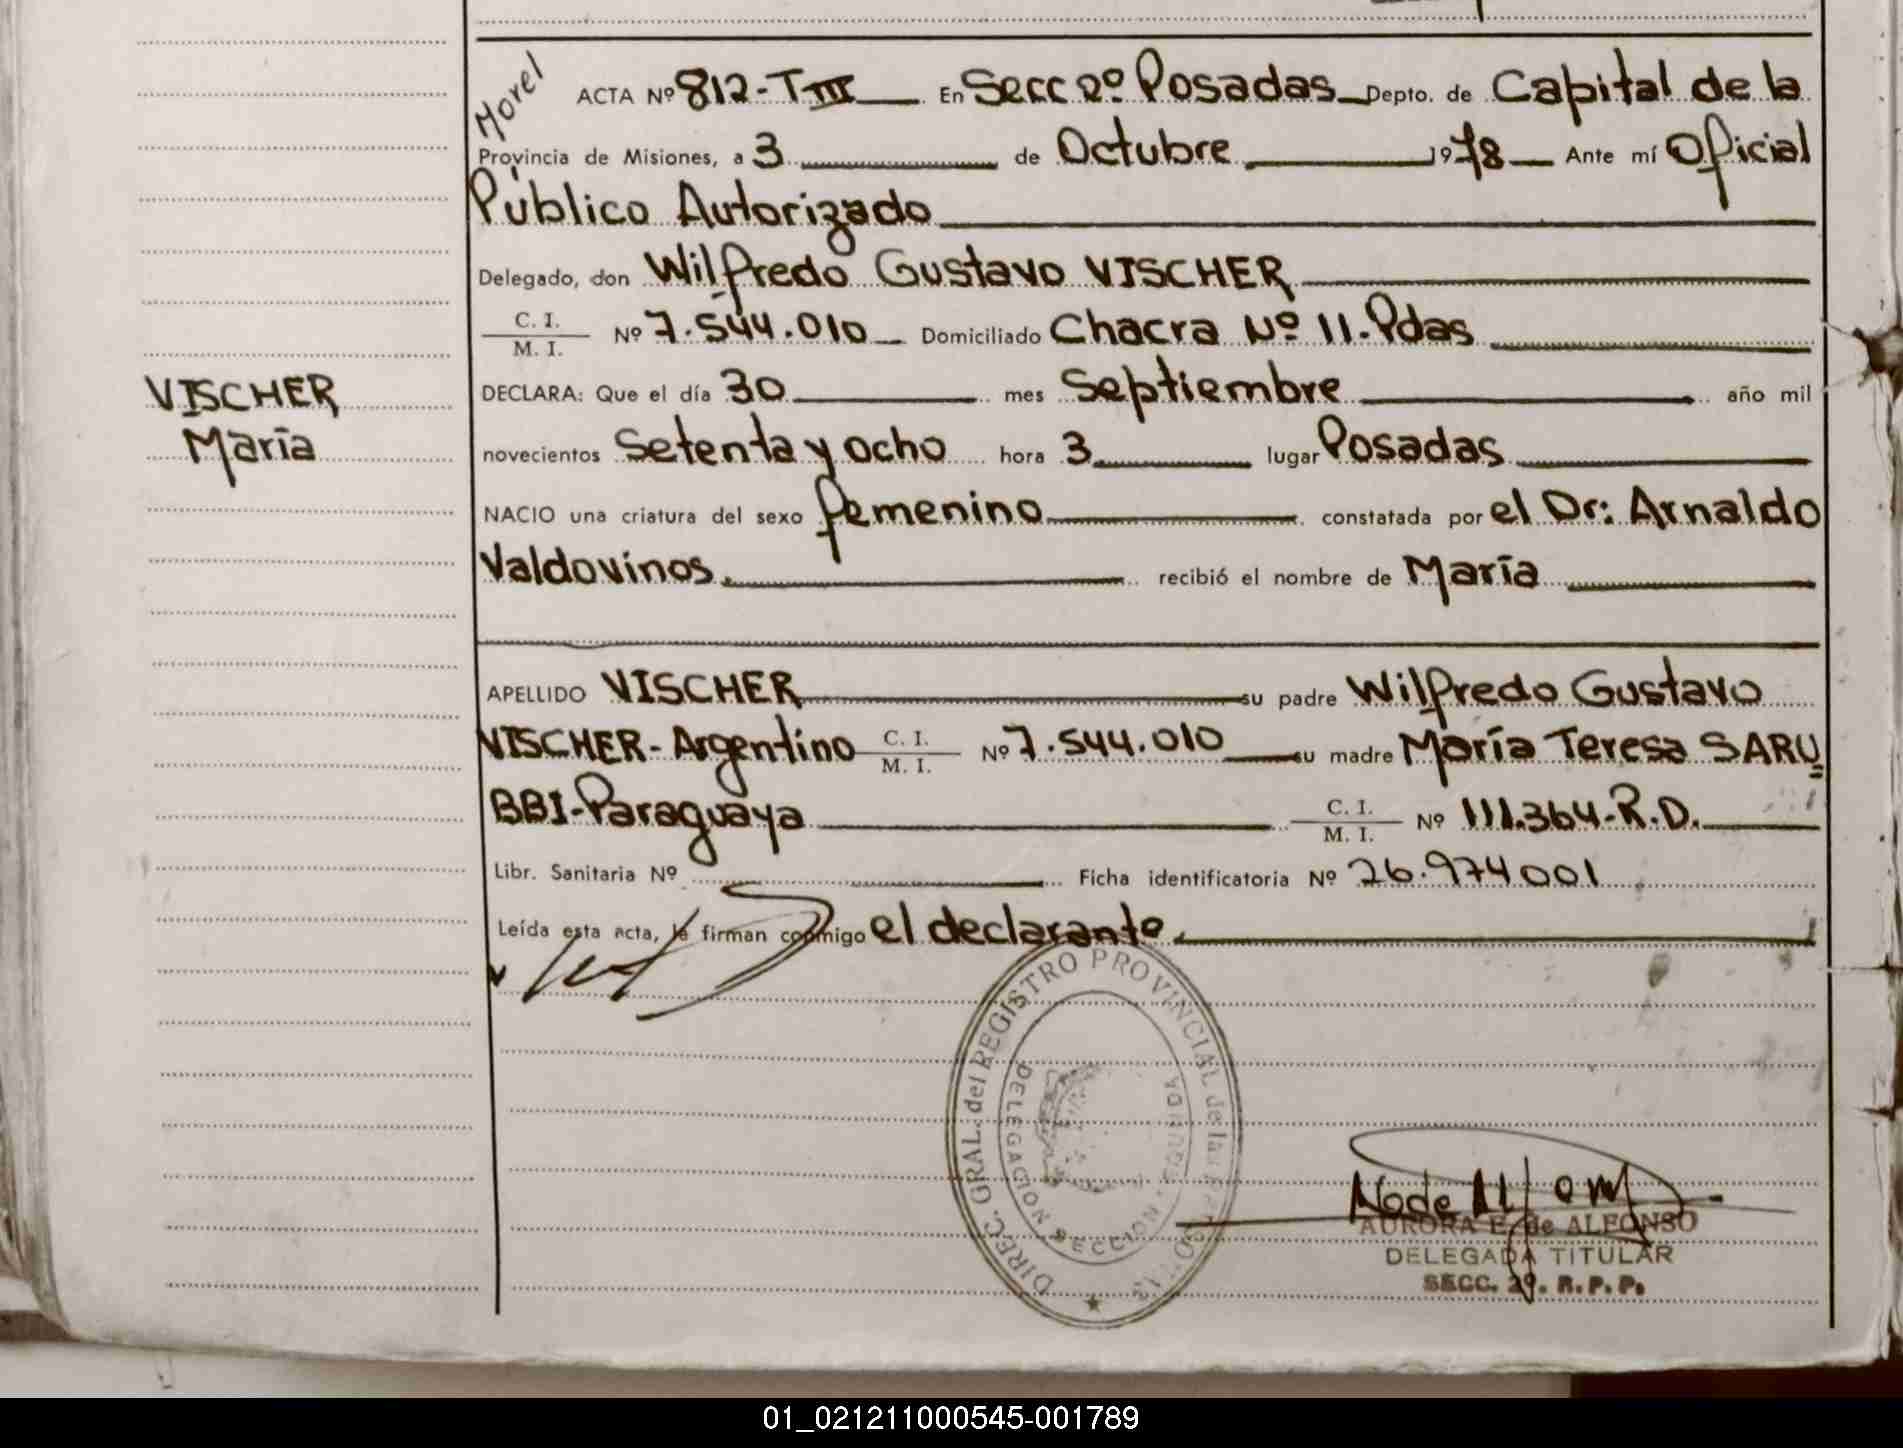 Morel
ACTA Nº 812-TIII En Secc 2º Posadas Depto. de Capital de la
Provincia de Misiones, a 3 de Octubre 1978 Ante mí Oficial
Público Autorizado
Delegado, don Wilfredo Gustavo VISCHER
C. I.
M. I.
Nº 7.544.010 Domiciliado Chacra Nº 11-Pdas
DECLARA: Que el día 30 mes Septiembre año mil
VISCHER
María
novecientos Setenta y ocho hora 3 lugar Posadas
NACIO una criatura del sexo femenino constatada por el Dr: Arnaldo
Valdovinos. recibió el nombre de María
APELLIDO VISCHER su padre Wilfredo Gustavo
VISCHER-Argentino C. I. M. I. Nº 7.544.010 su madre María Teresa SARU=
BBI-Paraguaya C. I. M. I. Nº 111.364-R.D.
Libr. Sanitaria Nº Ficha identificatoria Nº 26.974001
Leída esta acta, la firman conmigo el declarante.
DIREC. GRAL. del REGISTRO PROVINCIAL de las
DELEGACION SECCION
AURORA E. de ALFONSO
DELEGADA TITULAR
SECC. 2ª. R.P.P.
01_021211000545-001789